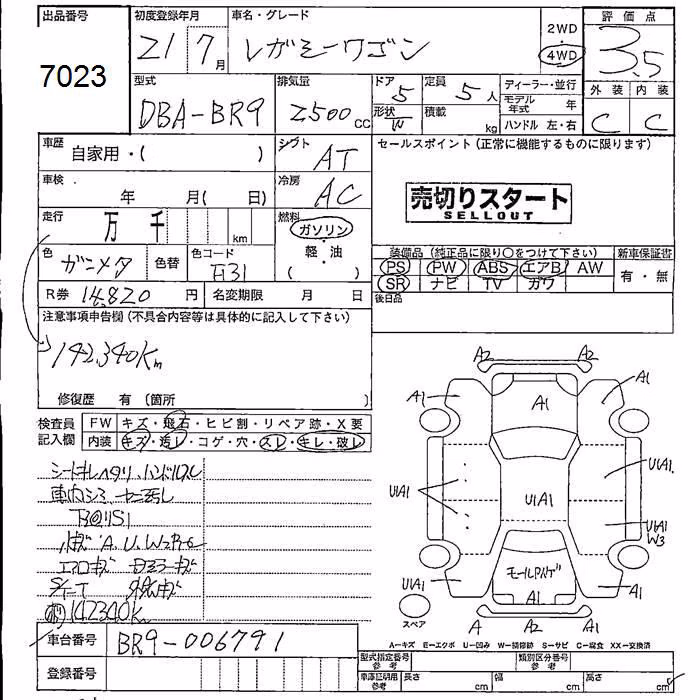 出品番号
7023
初度登録年月
21 7月
車名・グレード
レガシーワゴン
2WD
・
4WD
評価点
3.5
外装 内装
C C
型式
DBA-BR9
排気量
2500 CC
ドア
5
形状
W
定員
5人
積載
kg
ディーラー・並行
モデル年式 年
ハンドル 左・右
車歴
自家用・( )
シフト
AT
セールスポイント (正常に機能するものに限ります)
売切りスタート
SELLOUT
車検
年 月( 日)
冷房
AC
走行
万 千 km
燃料
ガソリン
・
軽・油
( )
色
ガンメタ
色替
色コード
装備品 (純正品に限り○をつけて下さい)
新車保証書
PS PW ABS エアB AW
有・無
SR ナビ TV カワ
後日品
R券 14,820 円
名変期限 月 日
注意事項申告欄 (不具合内容等は具体的に記入して下さい)
142340Km
修復歴 有 (箇所 )
検査員
記入欄
FW キズ・飛石・ヒビ割・リペア跡・X要
内装 キズ・汚レ・コゲ・穴・スレ・キレ・破レ
シートキレヘタリ、ハンドルスレ
車内シミ
142340K
車台番号 BR9-006791
登録番号
A2 A2
A1 A1 A1
UIA1 UIA1 UIA1
UIA1
W3
UIA1 A1 A1
スペア
A A2
A-キズ E-エクボ U-凹み W-補修跡 S-サビ C-腐食 XX-交換済
型式指定番号
参考
類別区分番号
参考
車庫証明用
参考
長さ cm 幅 cm 高さ cm